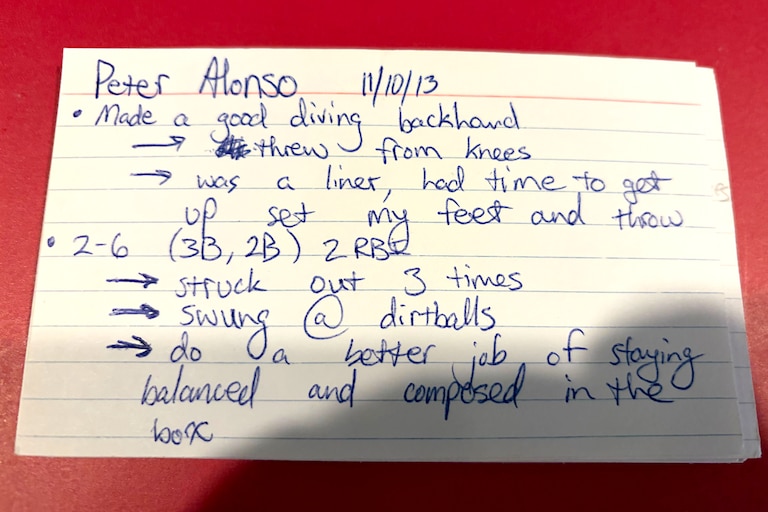 Peter Alonso 11/10/13
• Made a good diving backhand
→ threw from knees
→ was a liner, had time to get
up set my feet and throw
• 2-6 (3B, 2B) 2 RBI
→ struck out 3 times
→ swung @ dirtballs
→ do a better job of staying
balanced and composed in the
box